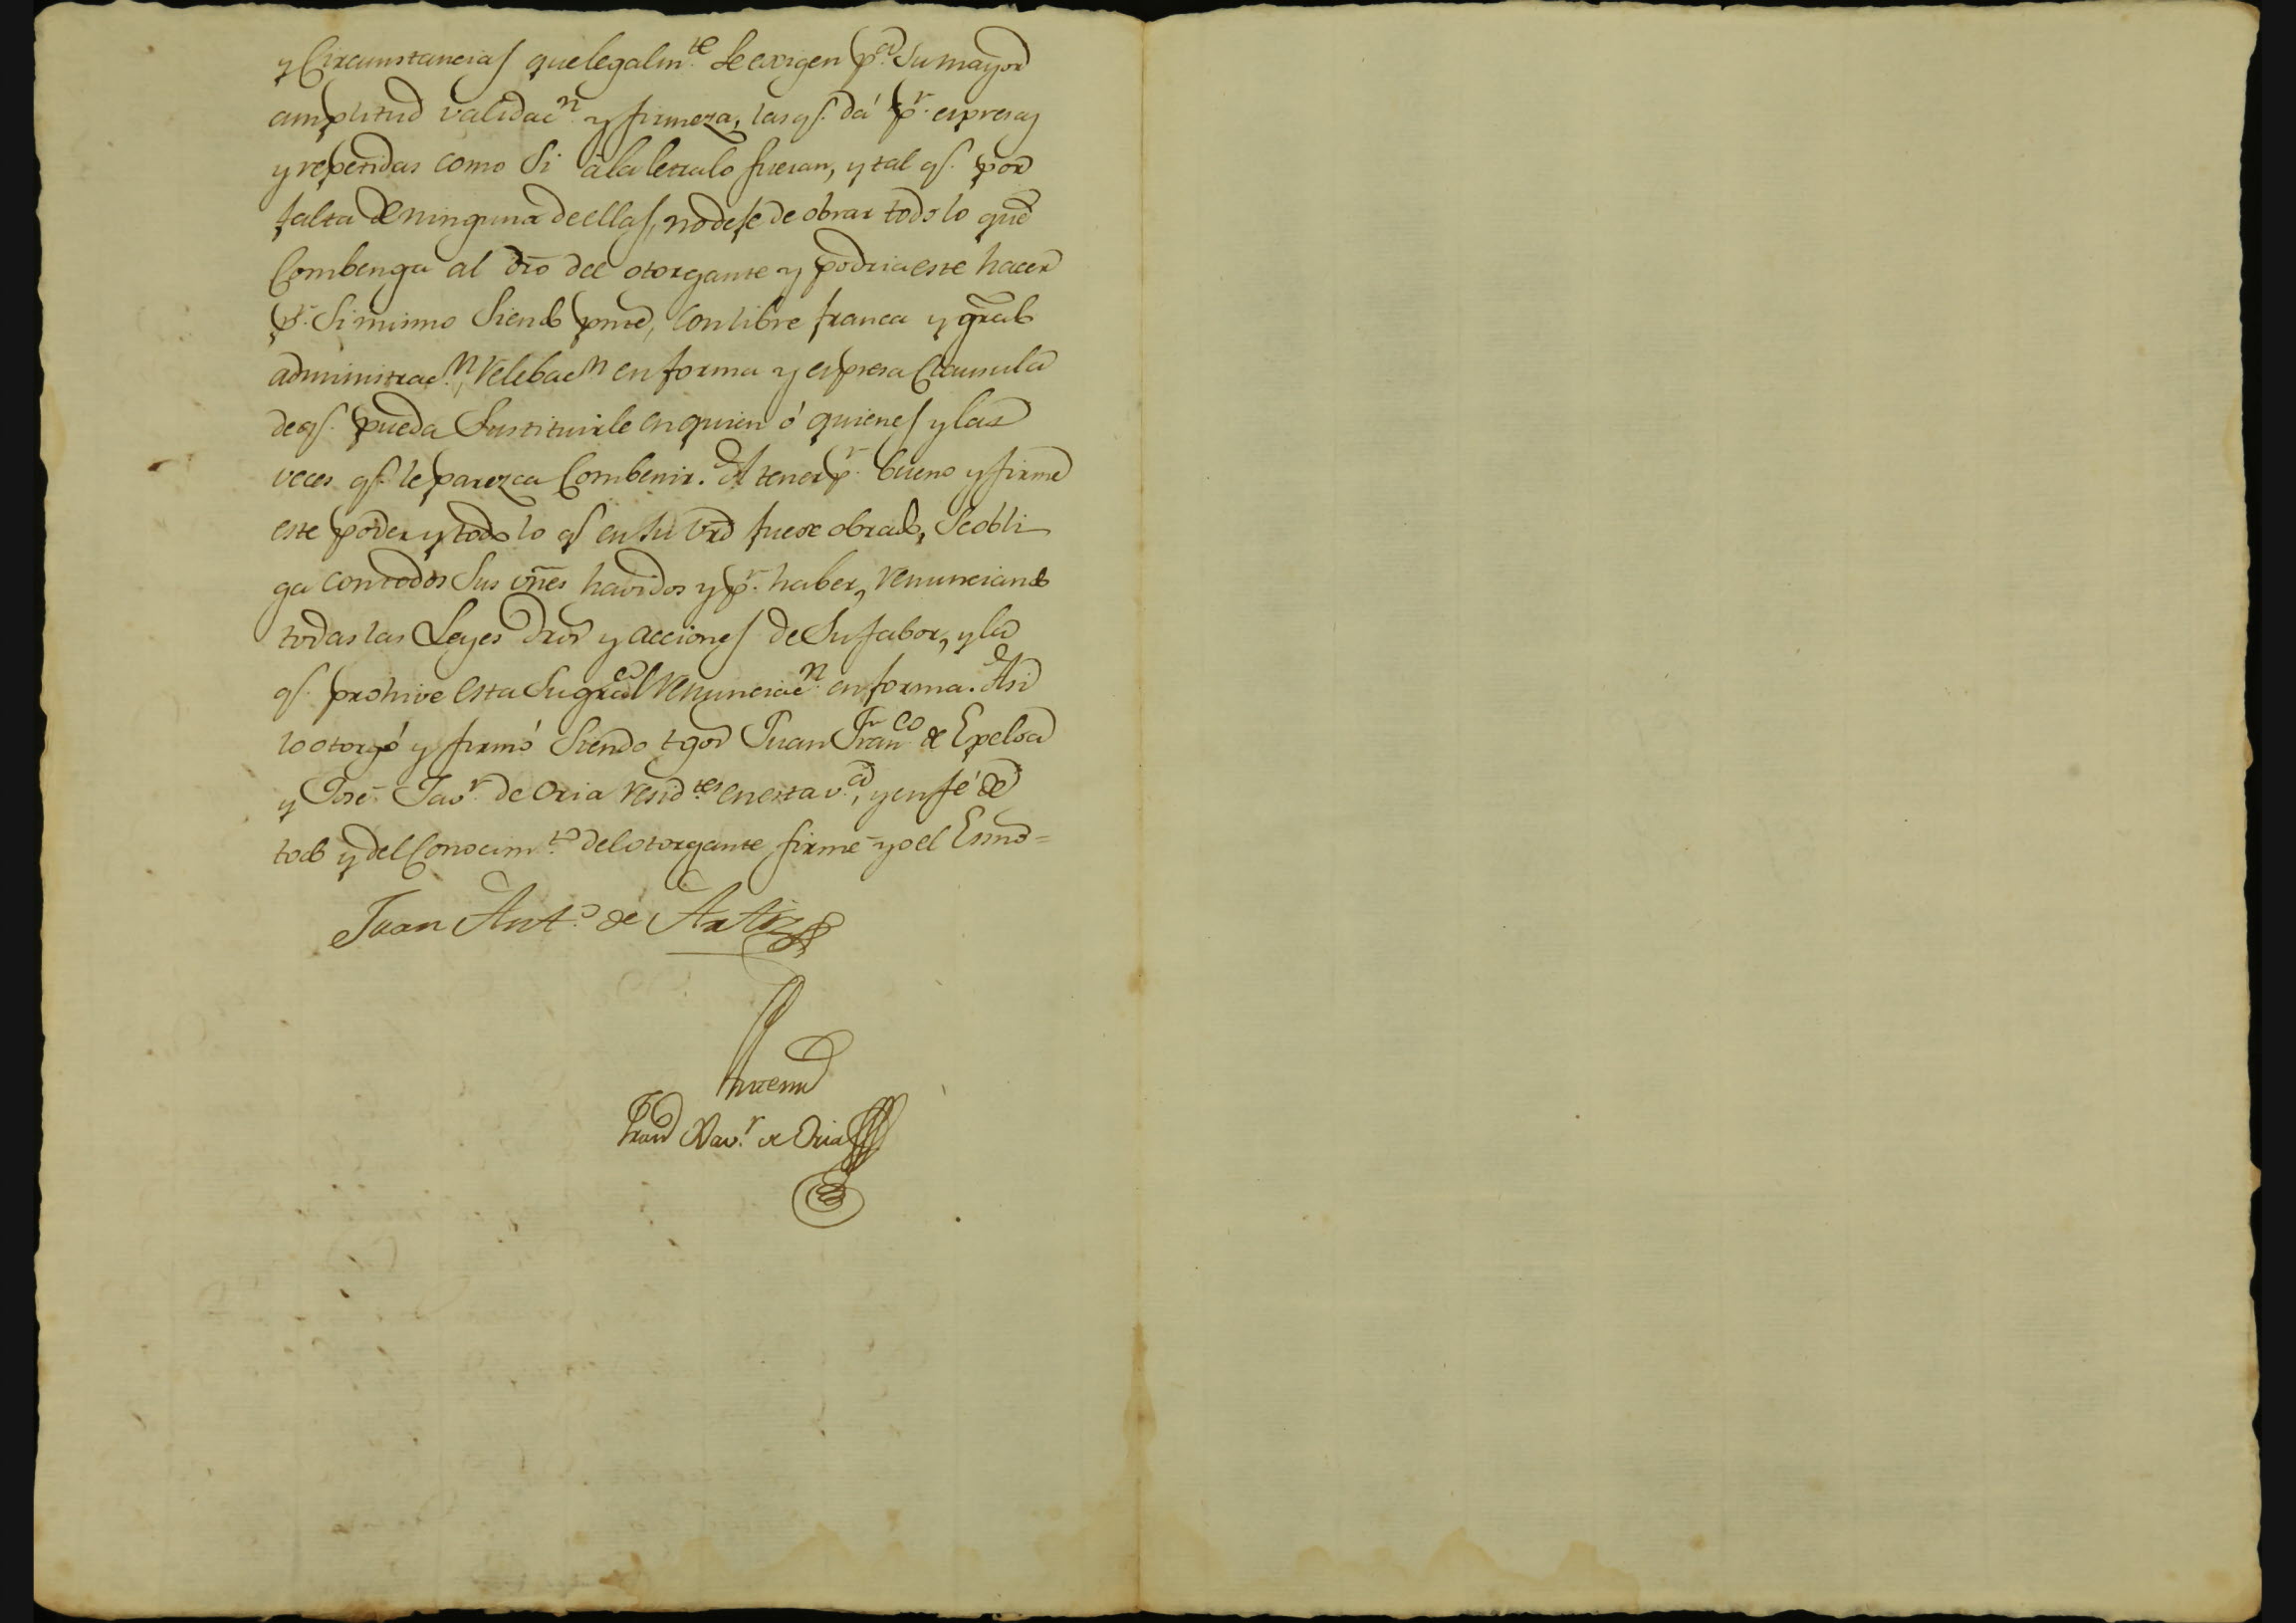 y Circunstancias que legalm.te se exigen p.a su mayor
amplitud validac.n y firmeza, las q.s dá p.r expresas
y repetidas como si à la letra lo fueran, y tal q.e por
falta de ninguna de ellas, no deje de obrar todo lo que
Combenga al dro del otorgante y podria este hacer
p.r si mismo siendo pnte, con libre franca y gral
administrac.n, relebac.n en forma y expresa Clausula
de q.e pueda sustituirle en quien ó quienes y las
veces q.e le parezca Combenir. A tener p.r bueno y firme
este poder y todo lo q.e en su vrd fuere obrado, se obli
ga con todos sus vnes havidos y p.r haber, renunciando
todas las Leyes dros y acciones de su fabor, y la
q.e prohive esta su gral renunciac.n en forma. Asi
lo otorgó y firmó siendo tgos Juan Fran.co de Epelva
y José Jav.r de Oria resid.tes en esta v.a, y en fé de
todo y del Conocim.to del otorgante firmé yo el Esno =
Juan Ant.o de
Antemi
Fran.co Xav.r de Oria